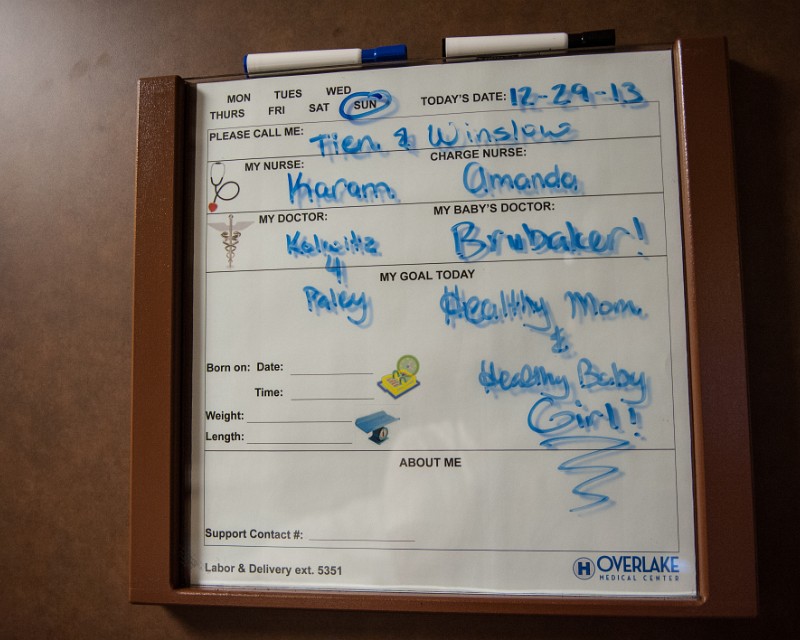 MON TUES WED
THURS FRI SAT SUN
TODAY'S DATE: 12-29-13
PLEASE CALL ME: Tien & Winslow
MY NURSE: Karam
CHARGE NURSE: Amanda
MY DOCTOR:
Paley
MY BABY'S DOCTOR: Brubaker!
MY GOAL TODAY
Healthy Mom
&
Healthy Baby
Girl!!
Born on: Date:
Time:
Weight:
Length:
ABOUT ME
Support Contact #:
Labor & Delivery ext. 5351
H OVERLAKE
MEDICAL CENTER